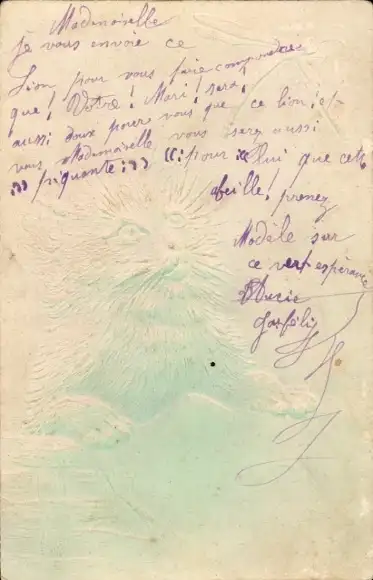 Mademoiselle
Je vous envoie ce
Lion, pour vous faire comprendre
que! Votre! Mari! sera!
aussi doux pour vous que ce lion, et
vous Mademoiselle, vous serez aussi
piquante pour celui que cette
abeille! prenez
Modèle sur
ce vert espérance